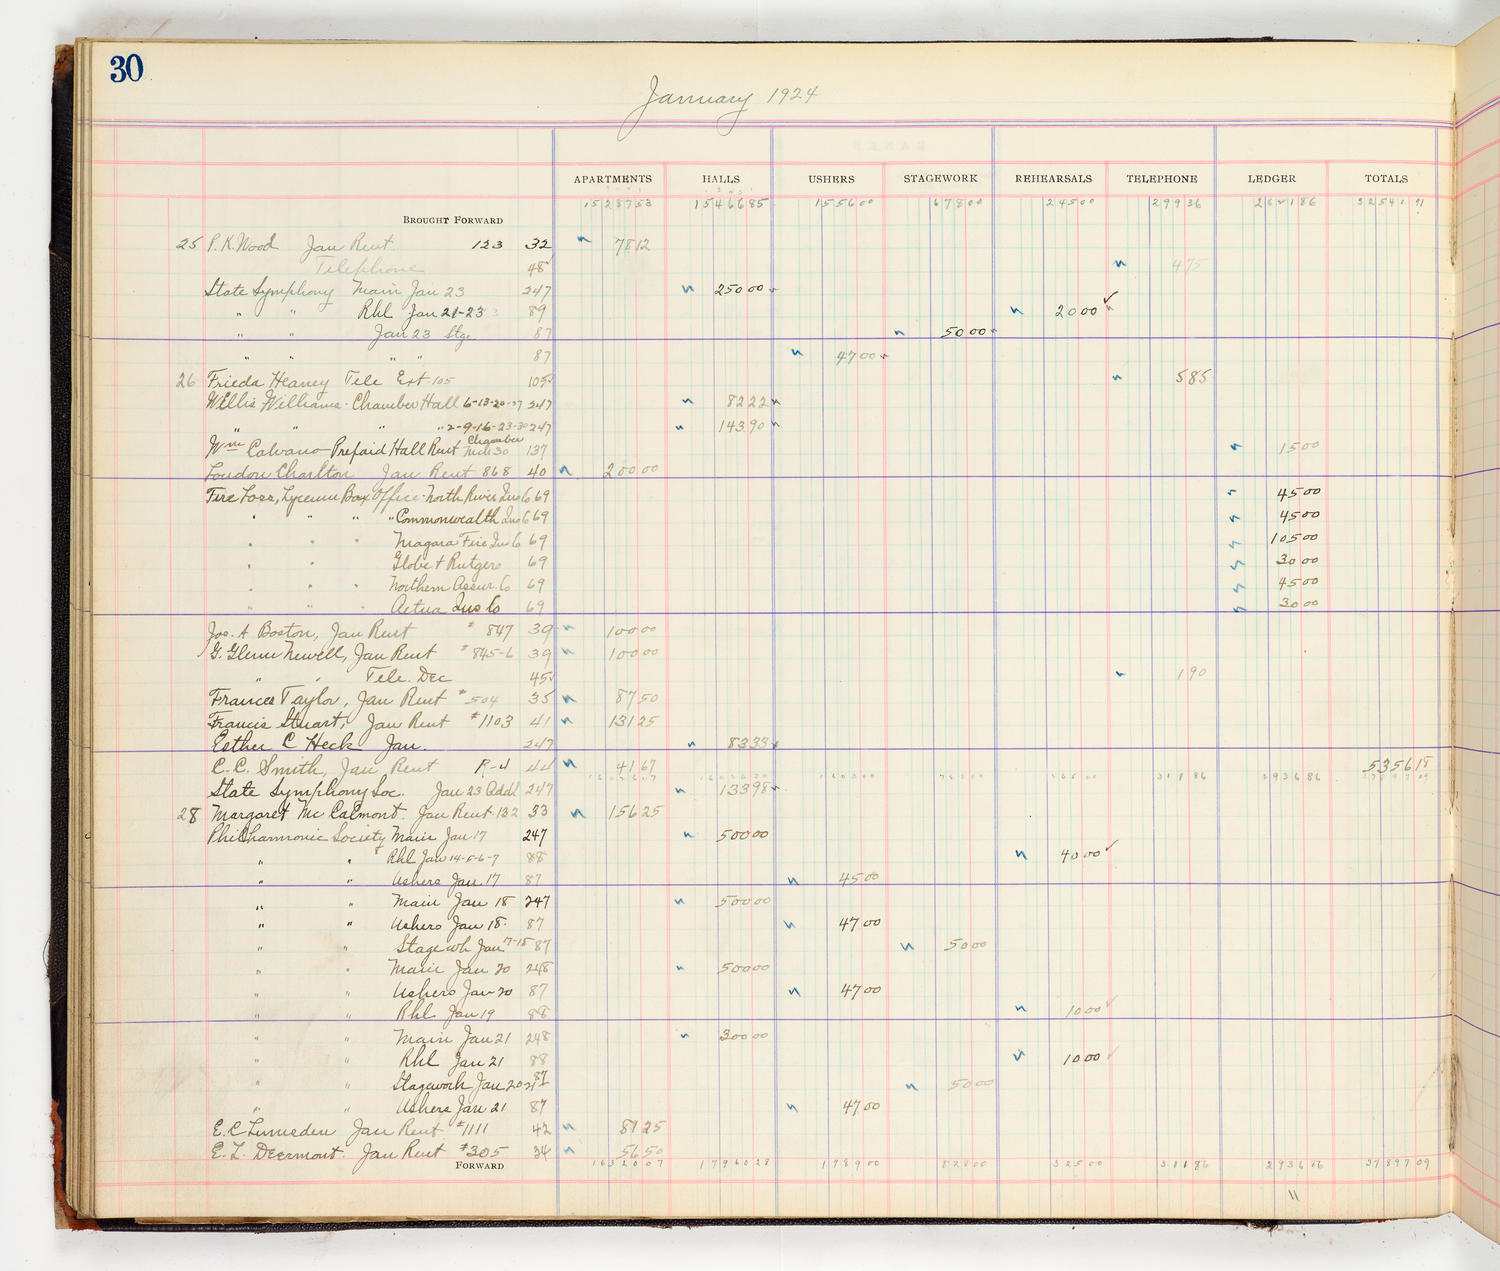 30
January 1924
APARTMENTS HALLS USHERS STAGEWORK REHEARSALS TELEPHONE LEDGER TOTALS
BROUGHT FORWARD 1528753 1546685 155600 67800 24500 29936
25 P. K. Wood Jan Rent 123 32 7812
Telephone 48 475
State Symphony Main Jan 23 247 25000
" " Rhl Jan 21-23 89 2000
" " Jan 23 Stge 87 5000
" " " " 87 4700
26 Frieda Heaney Tele Ext 105 105 585
Willis Williams - Chamber Hall 6-13-20-27 247 8222
" " " " 2-9-16-23-30 247 14390
Wm Calvano Prepaid Hall Rent Chamber Mch 30 137 1500
Loudon Charlton Jan Rent 868 40 20000
Fire Loss, Lyceum Box Office - North River Ins Co 69 4500
" " " " Commonwealth Ins Co 69 4500
" " " Niagara Fire Ins Co 69 10500
" " " Globe & Rutgers 69 3000
" " " Northern Assur. Co 69 4500
" " " Aetna Ins Co 69 3000
Jos. A Boston, Jan Rent # 847 39 10000
G. Glenn Newell, Jan Rent # 845-6 39 10000
" " Tele. Dec 45 190
Frances Taylor, Jan Rent # 504 35 8750
Francis Stuart, Jan Rent # 1103 41 13125
Esther C Heck Jan. 247 8333
C. C. Smith, Jan Rent R-4 44 4167 535618
State Symphony Soc. Jan 23 Addl 247 13398
28 Margaret Mc Calmont. Jan Rent 132 33 15625
Philharmonic Society Main Jan 17 247 50000
" " Rhl Jan 14-5-6-7 88 4000
" " Ushers Jan 17 87 4500
" " Main Jan 18 247 50000
" " Ushers Jan 18. 87 4700
" " Stagewk Jan 17-18 87 5000
" " Main Jan 20 248 50000
" " Ushers Jan 20 87 4700
" " Rhl Jan 19 88 1000
" " Main Jan 21 248 30000
" " Rhl Jan 21 88 1000
" " Stagework Jan 20-21 87 5000
" " Ushers Jan 21 87 4700
E. C Lumsden Jan Rent #1111 42 8125
E. L. Deermont. Jan Rent #305 34 5650
FORWARD 1632007 1796028 178900 82800 32500 31186 293686 3789709